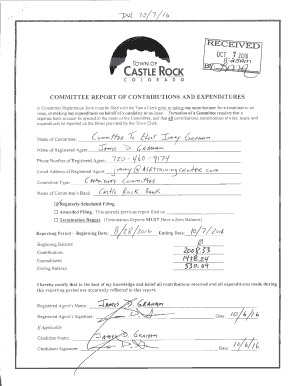 Due 10/7/16
RECEIVED
OCT 7 2016
BY:
TOWN OF
CASTLE ROCK
COLORADO
COMMITTEE REPORT OF CONTRIBUTIONS AND EXPENDITURES
A Committee Registration form must be filed with the Town Clerk prior to taking any contributions for a candidate or an
issue, or making any expenditures on behalf of a candidate or an issue. Formation of a Committee requires that a
separate bank account be opened in the name of the Committee, and that all contributions, contributions in kind, loans, and
expenditures be reported on the forms provided by the Town Clerk.
Name of Committee: Committee To Elect Jimmy Graham
Name of Registered Agent: James D Graham
Phone Number of Registered Agent: 720-460-9174
Email Address of Registered Agent:
Committee Type: Candidate Committee
Name of Committee's Bank: Castle Rock Bank
Regularly Scheduled Filing.
Amended Filing. This amends previous report filed on
Termination Report. (Termination Reports MUST Have a Zero Balance)
Reporting Period - Beginning Date: 8/28/2016 Ending Date: 10/7/2016
Beginning Balance Ø
Contributions 2008.33
Expenditures 1478.24
Ending Balance 530.09
I hereby certify that to the best of my knowledge and belief all contributions received and all expenditures made during
this reporting period are accurately reflected in this report.
Registered Agent's Name: James D. Graham
Registered Agent's Signature: Date: 10/6/16
If Applicable
Candidate Name: James D. Graham
Candidate Signature: Date: 10/6/16